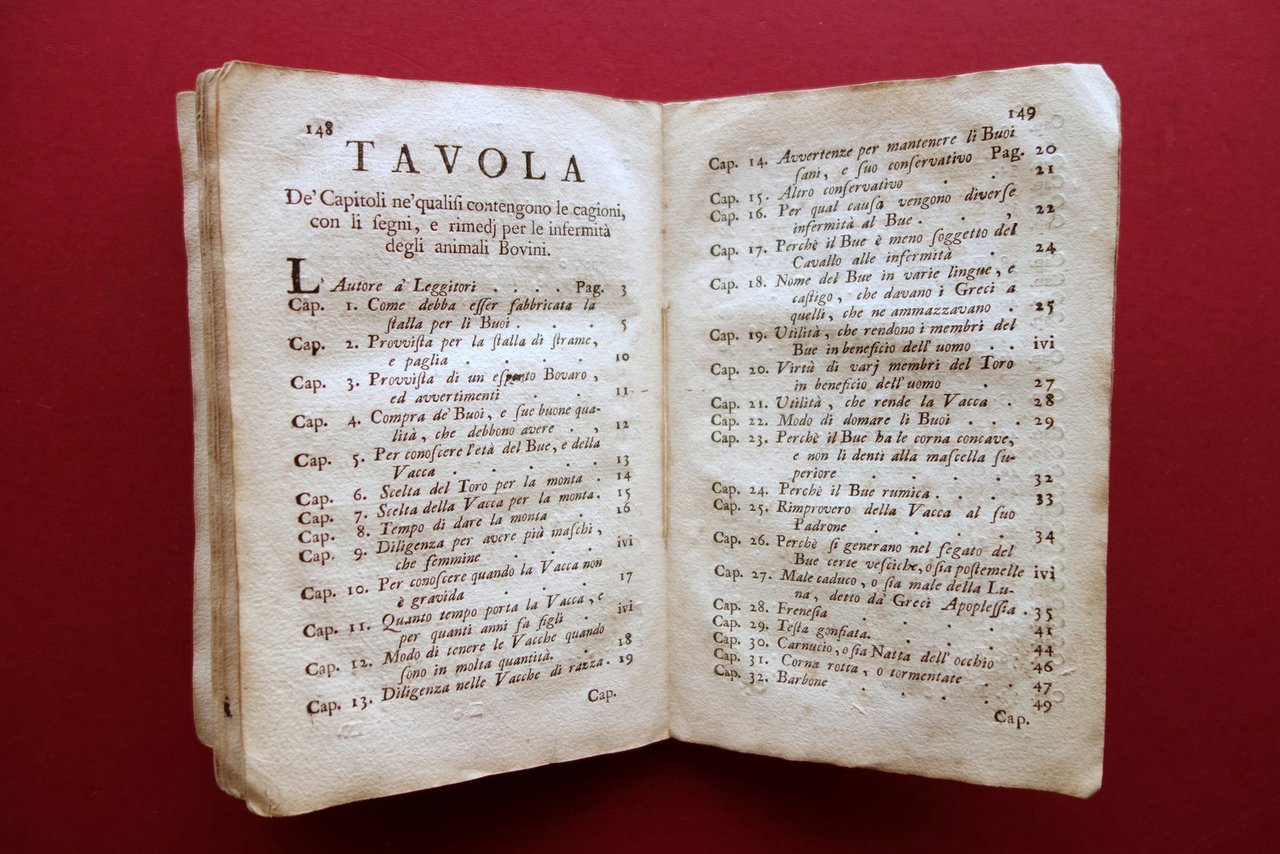 148
TAVOLA
De' Capitoli ne' qualisi contengono le cagioni,
con li segni, e rimedj per le infermità
degli animali Bovini.
L'Autore a' Leggitori . . . . Pag. 3
Cap. 1. Come debba esser fabbricata la
stalla per li Buoi . . . 5
Cap. 2. Provvista per la stalla di strame,
e paglia . . . . . 10
Cap. 3. Provvista di un esperto Bovaro,
ed avvertimenti . . . 11
Cap. 4. Compra de' Buoi, e sue buone qua-
lità, che debbono avere . , 12
Cap. 5. Per conoscere l'età del Bue, e della
Vacca . . . . . . 13
Cap. 6. Scelta del Toro per la monta . 14
Cap. 7. Scelta della Vacca per la monta. 15
Cap. 8. Tempo di dare la monta . . 16
Cap. 9. Diligenza per avere più maschi,
che femmine . . . . ivi
Cap. 10. Per conoscere quando la Vacca non
è gravida . . . . 17
Cap. 11. Quanto tempo porta la Vacca, e
per quanti anni fa figli . ivi
Cap. 12. Modo di tenere le Vacche quando
sono in molta quantità. . . 18
Cap. 13. Diligenza nelle Vacche di razza. 19
Cap.
149
Cap. 14. Avvertenze per mantenere li Buoi
sani, e suo conservativo Pag. 20
Cap. 15. Altro conservativo . . . 21
Cap. 16. Per qual causa vengono diverse
infermità al Bue . . , 22
Cap. 17. Perchè il Bue è meno soggetto del
Cavallo alle infermità . 24
Cap. 18. Nome del Bue in varie lingue, e
castigo, che davano i Greci a
quelli, che ne ammazzavano . 25
Cap. 19. Utilità, che rendono i membri del
Bue in beneficio dell'uomo . . ivi
Cap. 20. Virtù di varj membri del Toro
in beneficio dell'uomo . 27
Cap. 21. Utilità, che rende la Vacca . 28
Cap. 22. Modo di domare li Buoi . . . 29
Cap. 23. Perchè il Bue ha le corna concave,
e non li denti alla mascella su-
periore . . . . . 32
Cap. 24. Perchè il Bue rumica . . . . 33
Cap. 25. Rimprovero della Vacca al suo
Padrone . . . . . 34
Cap. 26. Perchè si generano nel fegato del
Bue certe vesciche, o sia postemelle ivi
Cap. 27. Male caduco, o sia male della Lu-
na, detto da' Greci Apoplessia . 35
Cap. 28. Frenesia . . . . . 41
Cap. 29. Testa gonfiata. . . . . 44
Cap. 30. Carnucio, o sia Natta dell'occhio 46
Cap. 31. Corna rotta, o tormentate . . 47
Cap. 32. Barbone . . . . . 49
Cap.